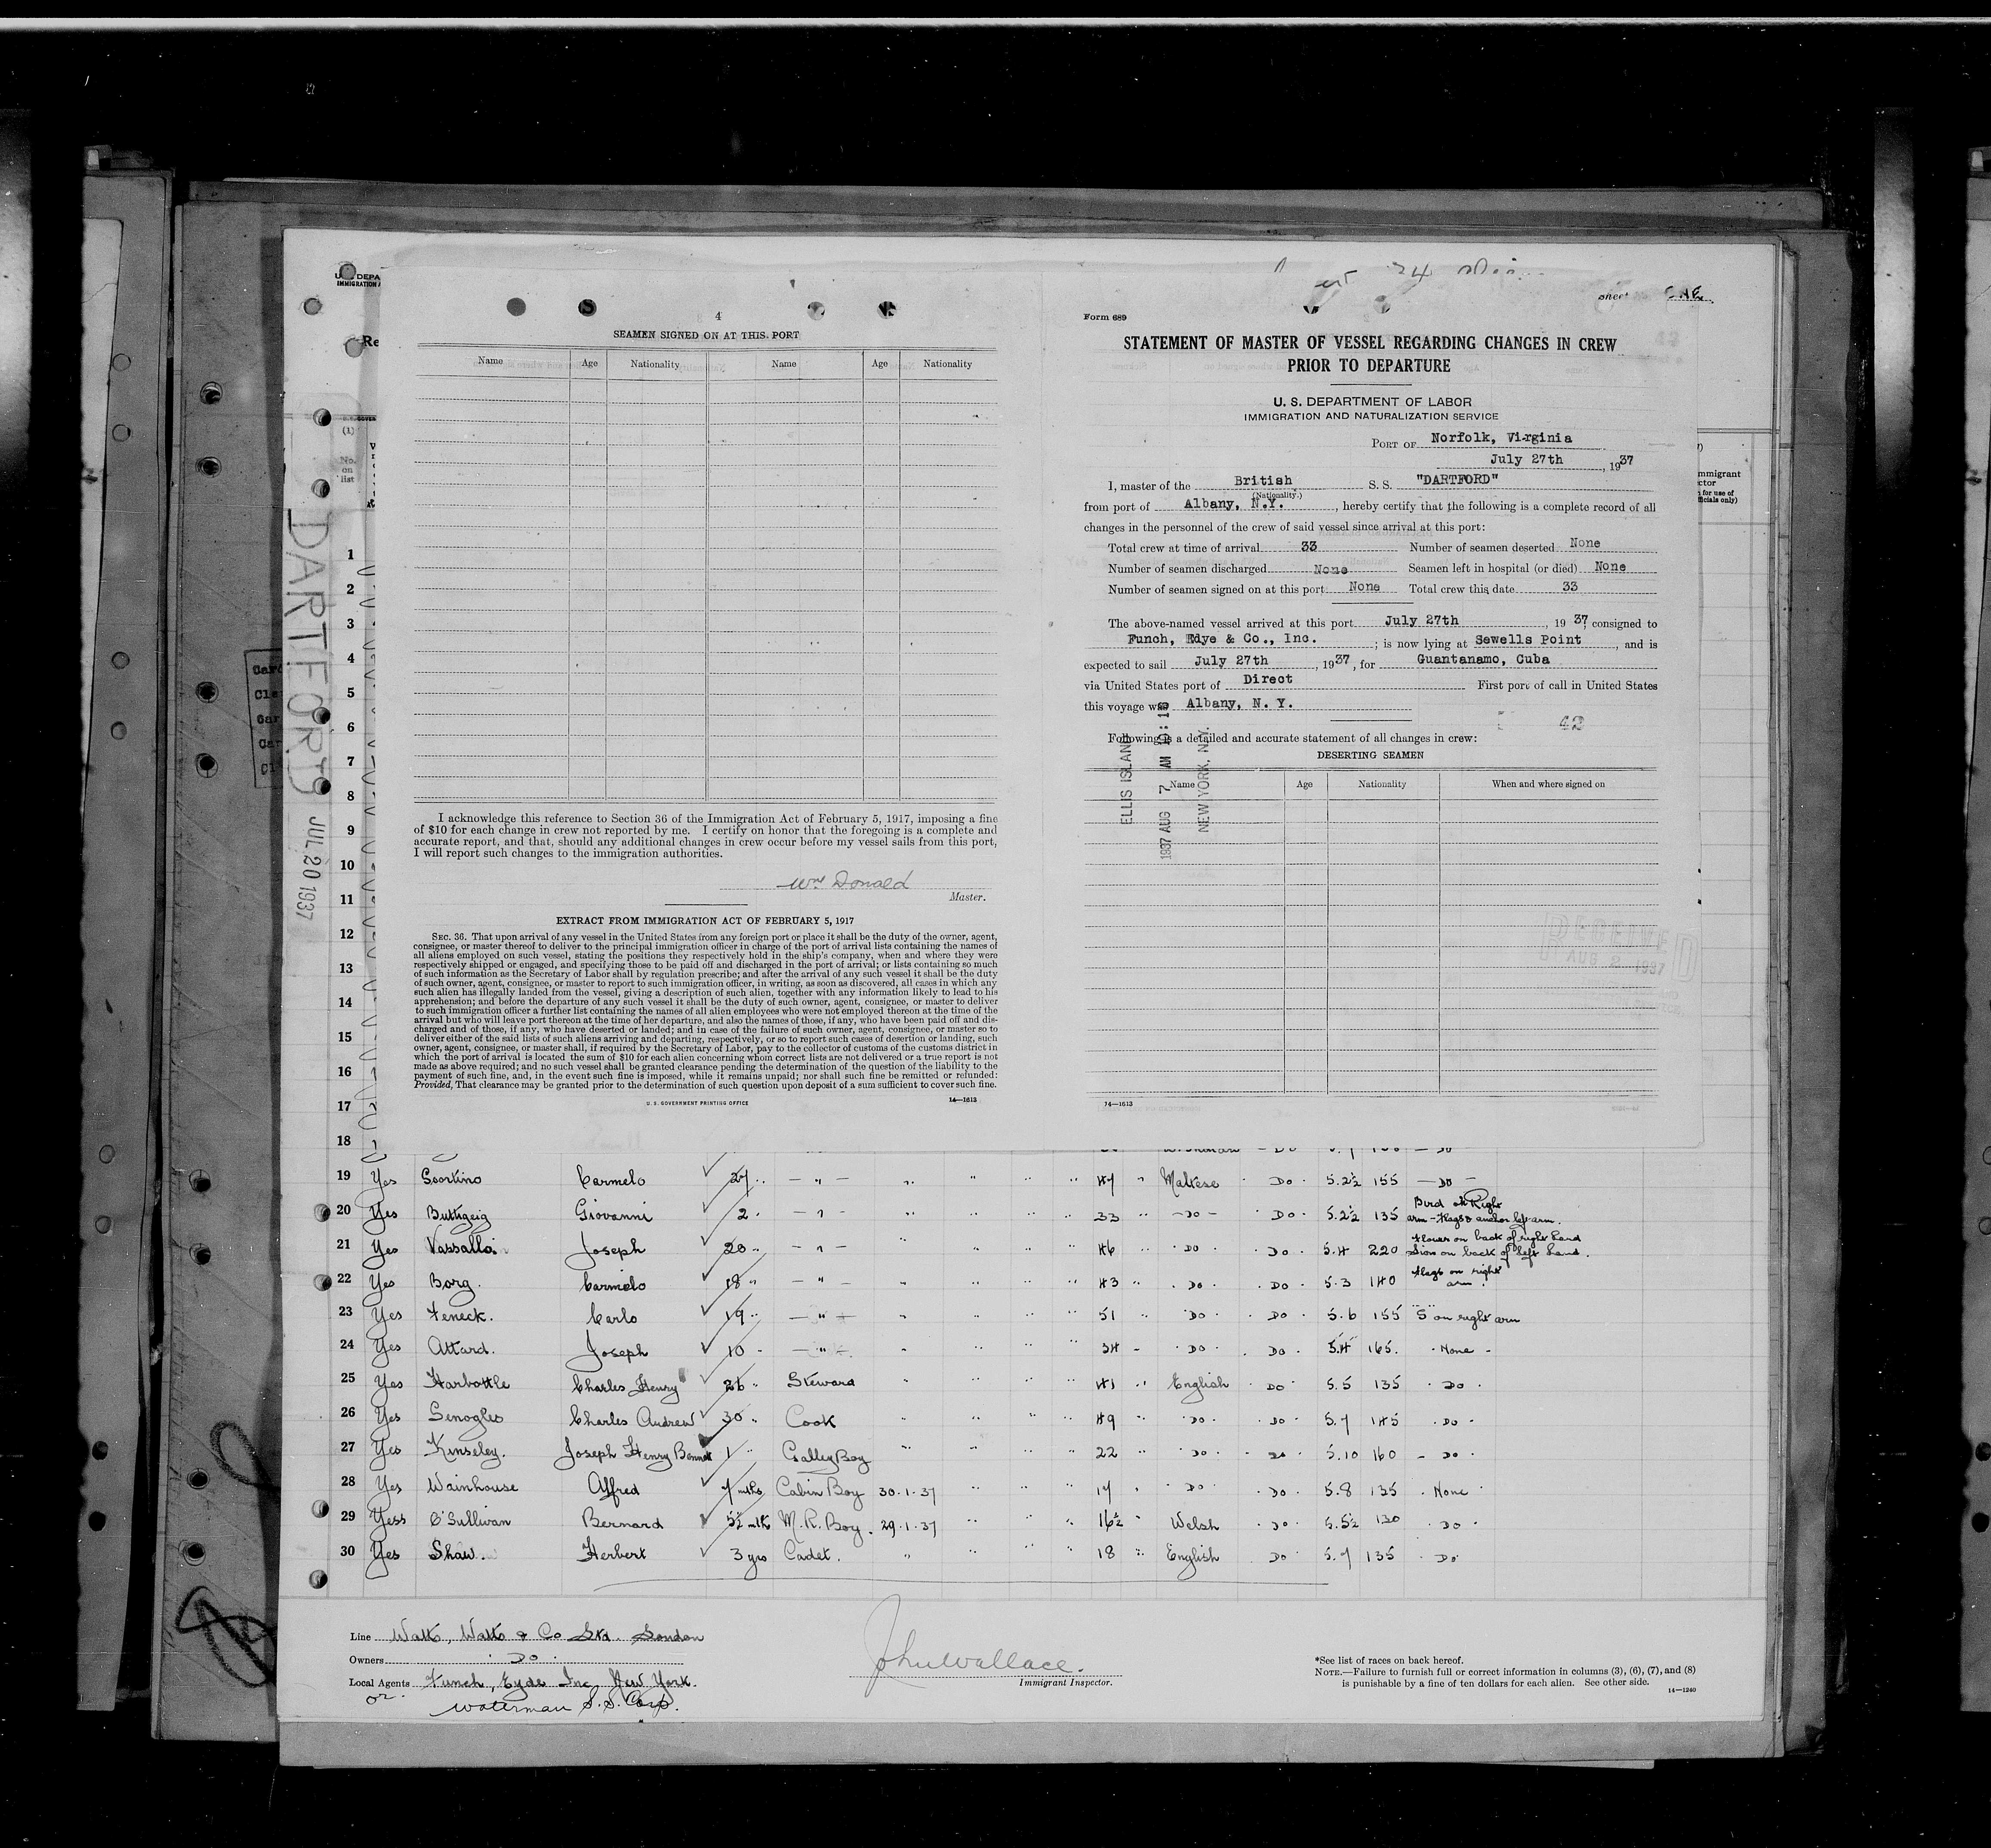 U. S. DEPA
IMMIGRATION A
Re
(1)
No.
on
list
DARTFORD
JUL 20 1937
1
2
3
4
5
6
7
8
9
10
11
12
13
14
15
16
17
18
4
SEAMEN SIGNED ON AT THIS PORT
Name Age Nationality Name Age Nationality
I acknowledge this reference to Section 36 of the Immigration Act of February 5, 1917, imposing a fine
of $10 for each change in crew not reported by me. I certify on honor that the foregoing is a complete and
accurate report, and that, should any additional changes in crew occur before my vessel sails from this port,
I will report such changes to the immigration authorities.
Wm Donald
Master.
EXTRACT FROM IMMIGRATION ACT OF FEBRUARY 5, 1917
SEC. 36. That upon arrival of any vessel in the United States from any foreign port or place it shall be the duty of the owner, agent,
consignee, or master thereof to deliver to the principal immigration officer in charge of the port of arrival lists containing the names of
all aliens employed on such vessel, stating the positions they respectively hold in the ship's company, when and where they were
respectively shipped or engaged, and specifying those to be paid off and discharged in the port of arrival; or lists containing so much
of such information as the Secretary of Labor shall by regulation prescribe; and after the arrival of any such vessel it shall be the duty
of such owner, agent, consignee, or master to report to such immigration officer, in writing, as soon as discovered, all cases in which any
such alien has illegally landed from the vessel, giving a description of such alien, together with any information likely to lead to his
apprehension; and before the departure of any such vessel it shall be the duty of such owner, agent, consignee, or master to deliver
to such immigration officer a further list containing the names of all alien employees who were not employed thereon at the time of the
arrival but who will leave port thereon at the time of her departure, and also the names of those, if any, who have been paid off and dis-
charged and of those, if any, who have deserted or landed; and in case of the failure of such owner, agent, consignee, or master so to
deliver either of the said lists of such aliens arriving and departing, respectively, or so to report such cases of desertion or landing, such
owner, agent, consignee, or master shall, if required by the Secretary of Labor, pay to the collector of customs of the customs district in
which the port of arrival is located the sum of $10 for each alien concerning whom correct lists are not delivered or a true report is not
made as above required; and no such vessel shall be granted clearance pending the determination of the question of the liability to the
payment of such fine, and, in the event such fine is imposed, while it remains unpaid; nor shall such fine be remitted or refunded:
Provided, That clearance may be granted prior to the determination of such question upon deposit of a sum sufficient to cover such fine.
U. S. GOVERNMENT PRINTING OFFICE 14—1613
24
Sheet ONE
Form 689
STATEMENT OF MASTER OF VESSEL REGARDING CHANGES IN CREW
PRIOR TO DEPARTURE
U. S. DEPARTMENT OF LABOR
IMMIGRATION AND NATURALIZATION SERVICE
PORT OF Norfolk, Virginia
July 27th, 1937
I, master of the British S. S. "DARTFORD"
(Nationality.)
from port of Albany, N.Y., hereby certify that the following is a complete record of all
changes in the personnel of the crew of said vessel since arrival at this port:
Total crew at time of arrival 33 Number of seamen deserted None
Number of seamen discharged None Seamen left in hospital (or died) None
Number of seamen signed on at this port None Total crew this date 33
The above-named vessel arrived at this port July 27th, 1937, consigned to
Funch, Edye & Co., Inc.; is now lying at Sewells Point, and is
expected to sail July 27th, 1937, for Guantanamo, Cuba
via United States port of Direct First port of call in United States
this voyage was Albany, N. Y.
42
Following is a detailed and accurate statement of all changes in crew:
DESERTING SEAMEN
Name Age Nationality When and where signed on
ELLIS ISLAND
1937 AUG 7 AM
NEW YORK, N.Y.
RECEIVED
AUG 2 1937
14—1613
mmigrant
ctor
for use of
fficials only)
19 Yes Scortino Carmelo 27 " — " — " " " " 47 " Maltese Do 5.2½ 155 — Do —
20 Yes Buttigeig Giovanni 2 " — " — " " " " 33 " — Do — Do 5.2½ 135 Bird on Right
arm - Flags & anchor left arm.
21 Yes Vassallo Joseph 20 " — " — " " " " 46 " Do Do 5.4 220 Flower on back of right hand
Lion on back of left hand.
22 Yes Borg. Carmelo 18 " — " — " " " " 43 " Do Do 5.3 140 Flags on right
arm.
23 Yes Feneck. Carlo 19 " — " — " " " " 51 " Do Do 5.6 155 "S" on right arm
24 Yes Attard. Joseph 10 " — " — " " " " 34 " Do Do 5.4 165. None
25 Yes Harbottle Charles Henry 26 " Steward " " " " 41 " English Do 5.5 135 Do
26 Yes Senogles Charles Andrew 30 " Cook " " " " 49 " Do Do 5.7 145 Do
27 Yes Kinseley. Joseph Henry 1 " Galley Boy " " " " 22 " Do Do 5.10 160 Do
28 Yes Wainhouse Alfred 7 mths Cabin Boy 30.1.37 " " " 17 " Do Do 5.8 135 None
29 Yess O'Sullivan Bernard 5½ mths M.R. Boy. 29.1.37 " " " 16½ " Welsh Do 5.5½ 130 Do
30 Yes Shaw. Herbert 3 yrs Cadet. " " " " 18 " English Do 5.7 135 Do
Line Watts, Watts & Co Ltd. London
Owners Do
Local Agents Funch, Eyde Inc New York.
or Waterman S.S. Corp.
John Wallace.
Immigrant Inspector.
*See list of races on back hereof.
NOTE.—Failure to furnish full or correct information in columns (3), (6), (7), and (8)
is punishable by a fine of ten dollars for each alien. See other side.
14—1240